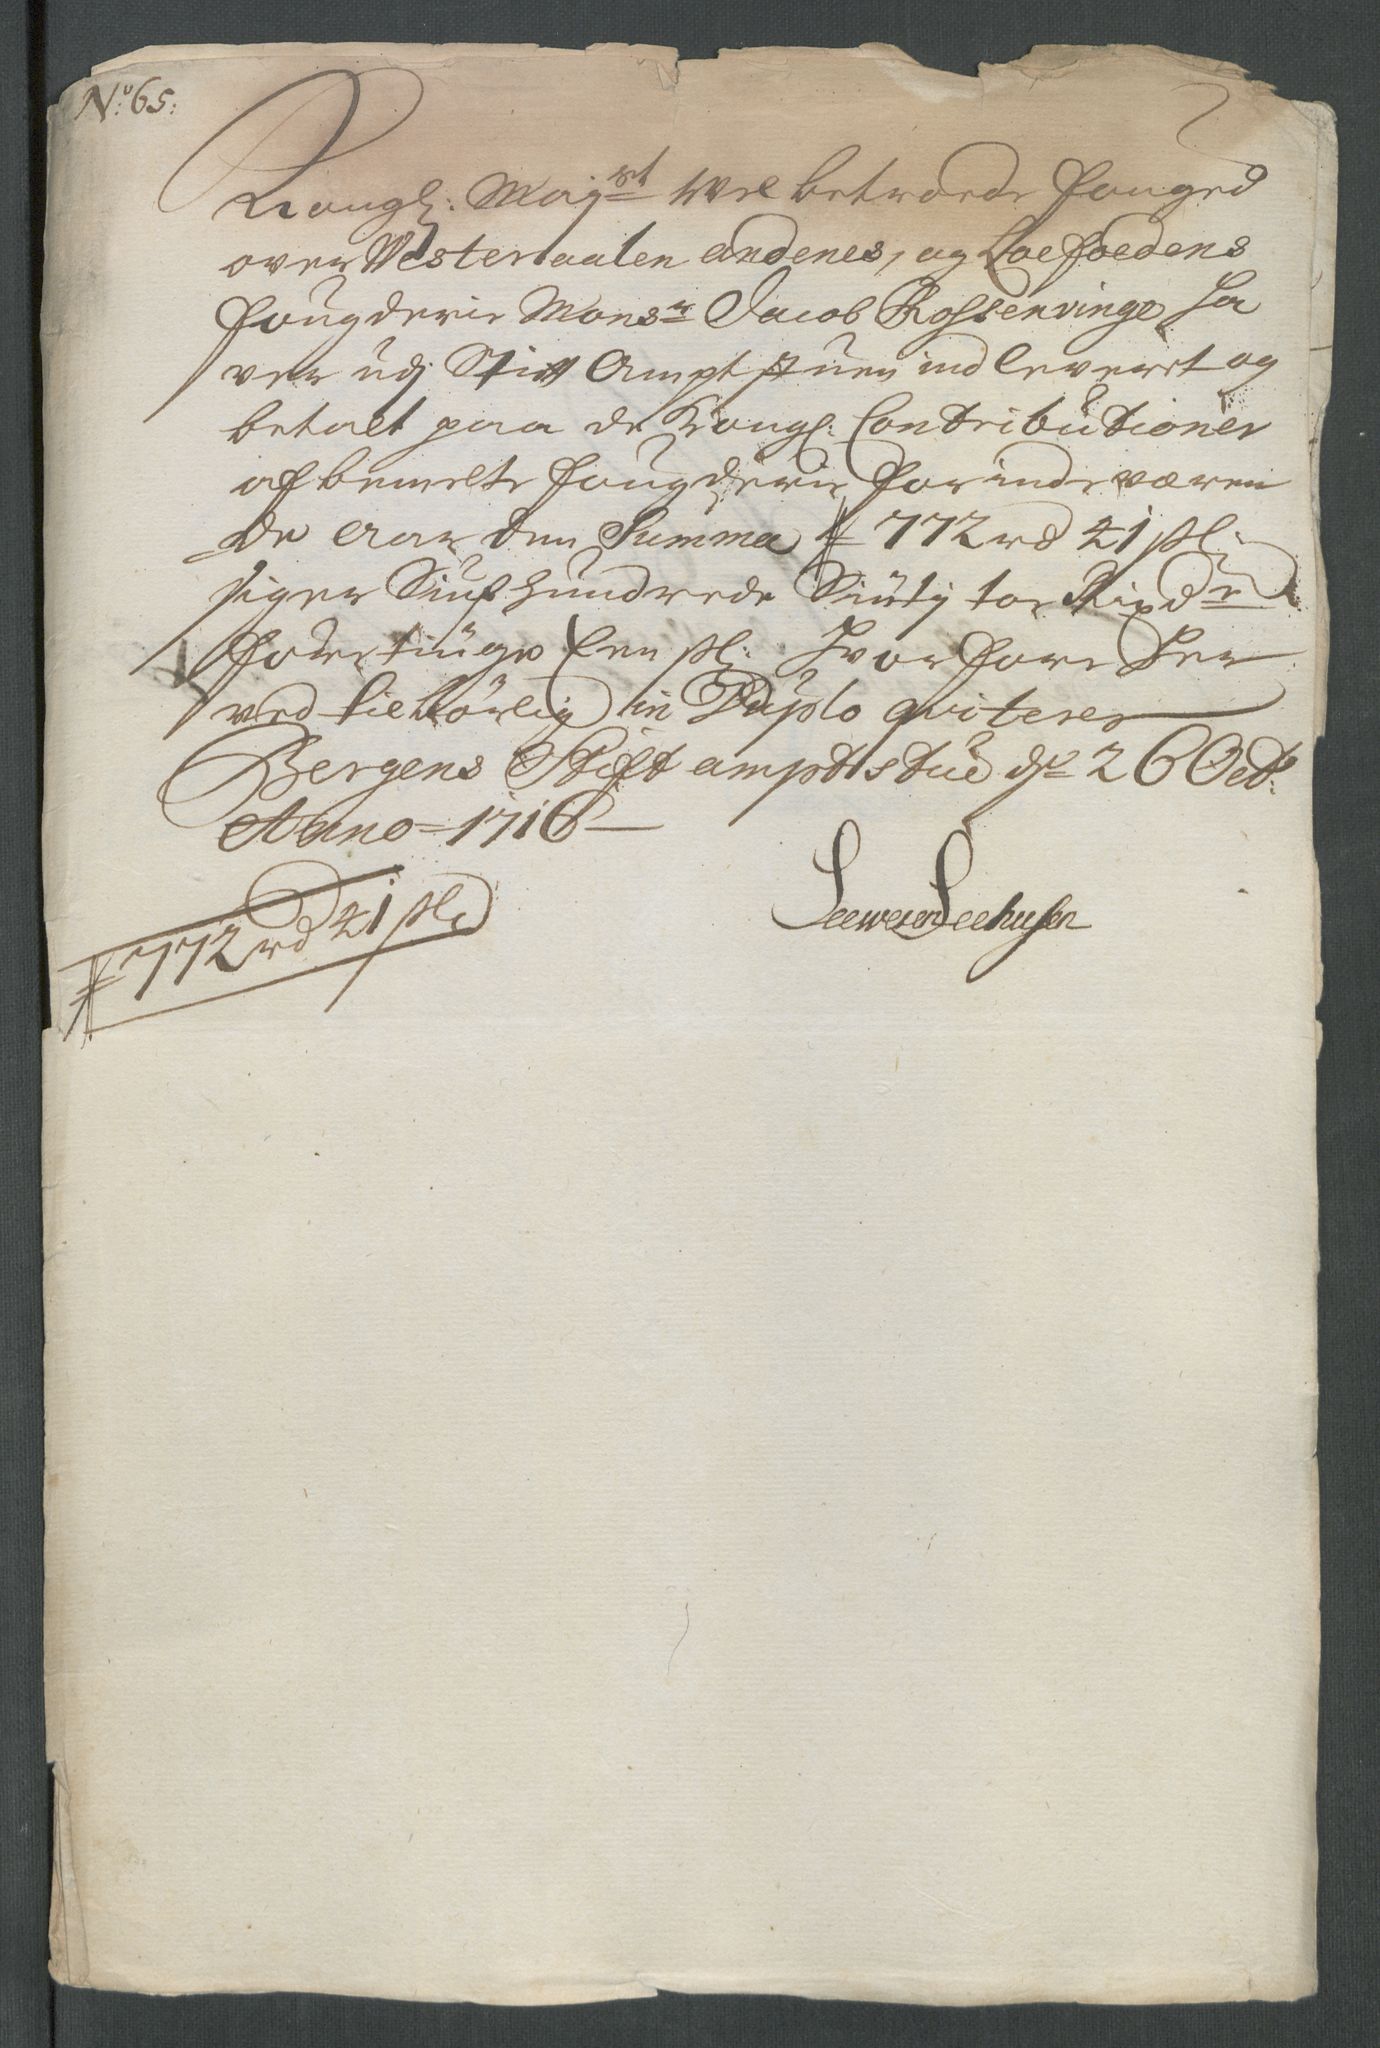 No: 65:
Kongl: Majst Wel betroede Fouged
over Westeraalen andenes, og Loefoedens
Fougderie Monsr Jacob Rossenvinge, ha
ver udj Stift Ampt stuen ind leverrt og
betalt paa de Kongl: Contributioner
af bemelte Fougderie for inde væren
de Aar den Summa # 772 rd 41 sl:
siger Siuf hundrede Siutÿ toe Rixdr
foretiuge Een sl: hvorfore her
ved tilbörlig in Duplo qviteres
Bergens Stift ampts stue de 26 Octb:
Anno 1716
# 772 rd 41 sl:
Seeweren Seehusen